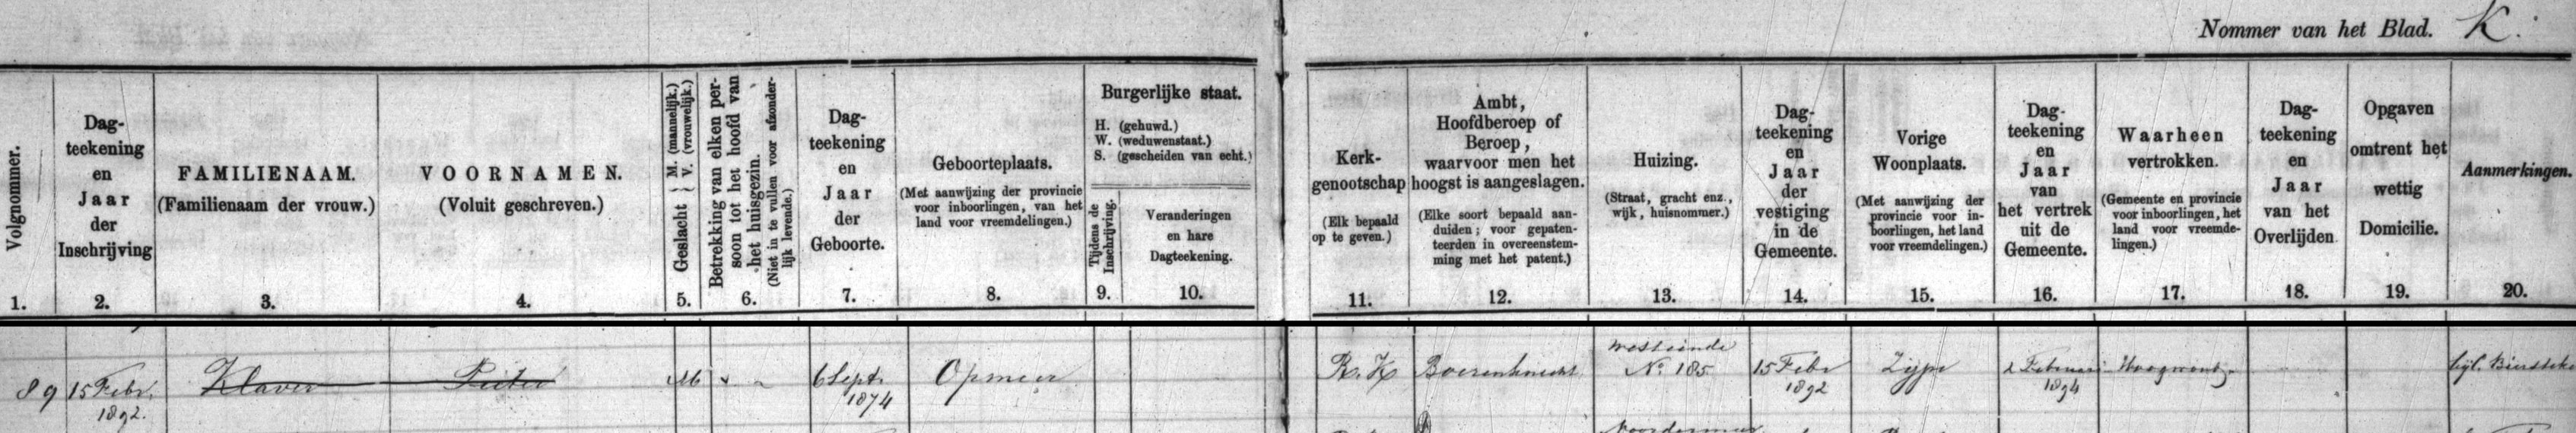 Nommer van het Blad. K.
Volgnommer.
1.
Dag-
teekening
en
Jaar
der
Inschrijving
2.
FAMILIENAAM.
(Familienaam der vrouw.)
3.
VOORNAMEN.
(Voluit geschreven.)
4.
Geslacht { M. (mannelijk.)
V. (vrouwelijk.)
5.
Betrekking van elken per-
soon tot het hoofd van
het huisgezin.
(Niet in te vullen voor afzonder-
lijk levende.)
6.
Dag-
teekening
en
Jaar
der
Geboorte.
7.
Geboorteplaats.
(Met aanwijzing der provincie
voor inboorlingen, van het
land voor vreemdelingen.)
8.
Burgerlijke staat.
H. (gehuwd.)
W. (weduwenstaat.)
S. (gescheiden van echt.)
Tijdens de
Inschrijving.
9.
Veranderingen
en hare
Dagteekening.
10.
Kerk-
genootschap
(Elk bepaald
op te geven.)
11.
Ambt,
Hoofdberoep of
Beroep,
waarvoor men het
hoogst is aangeslagen.
(Elke soort bepaald aan-
duiden; voor gepaten-
teerden in overeenstem-
ming met het patent.)
12.
Huizing.
(Straat, gracht enz.,
wijk, huisnommer.)
13.
Dag-
teekening
en
Jaar
der
vestiging
in de
Gemeente.
14.
Vorige
Woonplaats.
(Met aanwijzing der
provincie voor in-
boorlingen, het land
voor vreemdelingen.)
15.
Dag-
teekening
en
Jaar
van
het vertrek
uit de
Gemeente.
16.
Waarheen
vertrokken.
(Gemeente en provincie
voor inboorlingen, het
land voor vreemde-
lingen.)
17.
Dag-
teekening
en
Jaar
van het
Overlijden
18.
Opgaven
omtrent het
wettig
Domicilie.
19.
Aanmerkingen.
20.
89
15 Febr.
1892.
Klaver
Pieter
M
6 Sept.
1874
Opmeer
R.K
Boerenknecht
Westeinde
No 185
15 Febr
1892
Zijpe
2 Februari
1894
Hoogwoud
bijl.